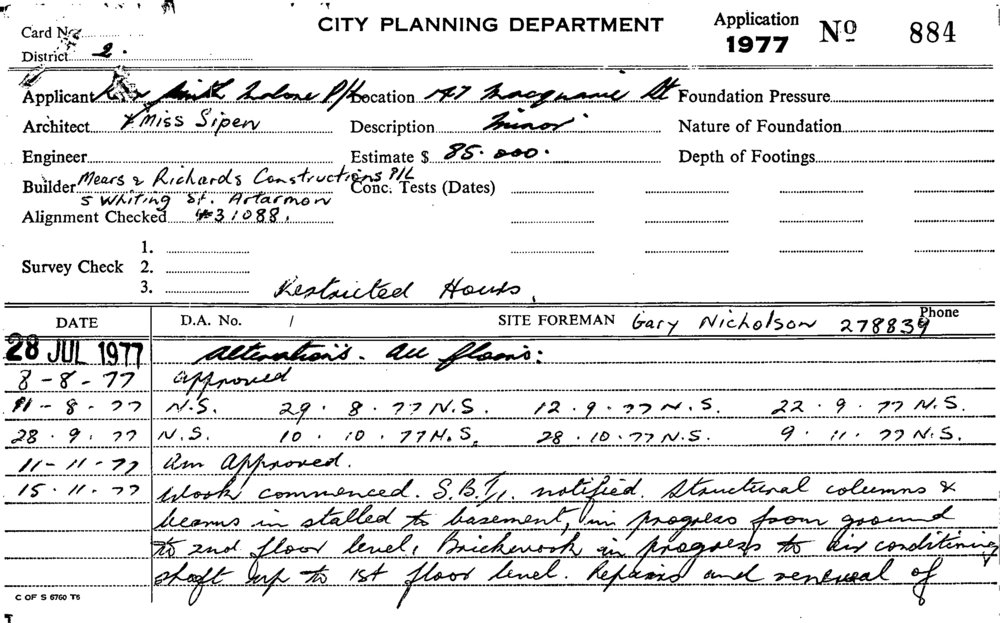 CITY PLANNING DEPARTMENT
Application 1977 No 884
Card No.
District 2.
Applicant Smith Malone P/L Location 147 Macquarie St Foundation Pressure
Architect Miss Sipen Description Minor Nature of Foundation
Engineer Estimate $ 85.000. Depth of Footings
Builder Mears & Richards Constructions P/L Conc. Tests (Dates)
5 Whiting St. Artarmon
Alignment Checked 31088.
1.
Survey Check 2.
3. Restricted Hours.
DATE D.A. No. / SITE FOREMAN Gary Nicholson 278839 Phone
28 JUL 1977 Alterations. All floors:
8-8-77 approved
11-8-77 N.S. 29.8.77 N.S. 12.9.77 N.S. 22.9.77 N.S.
28.9.77 N.S. 10.10.77 N.S. 28.10.77 N.S. 9.11.77 N.S.
11-11-77 Am Approved.
15.11.77 Work commenced. notified. Structural columns &
beams in stalled to basement, in progress from ground
to 2nd floor level, Brickwook in progress to air conditining
shaft up to 1st floor level. Repairs and renewal of
C OF S 6760 T6